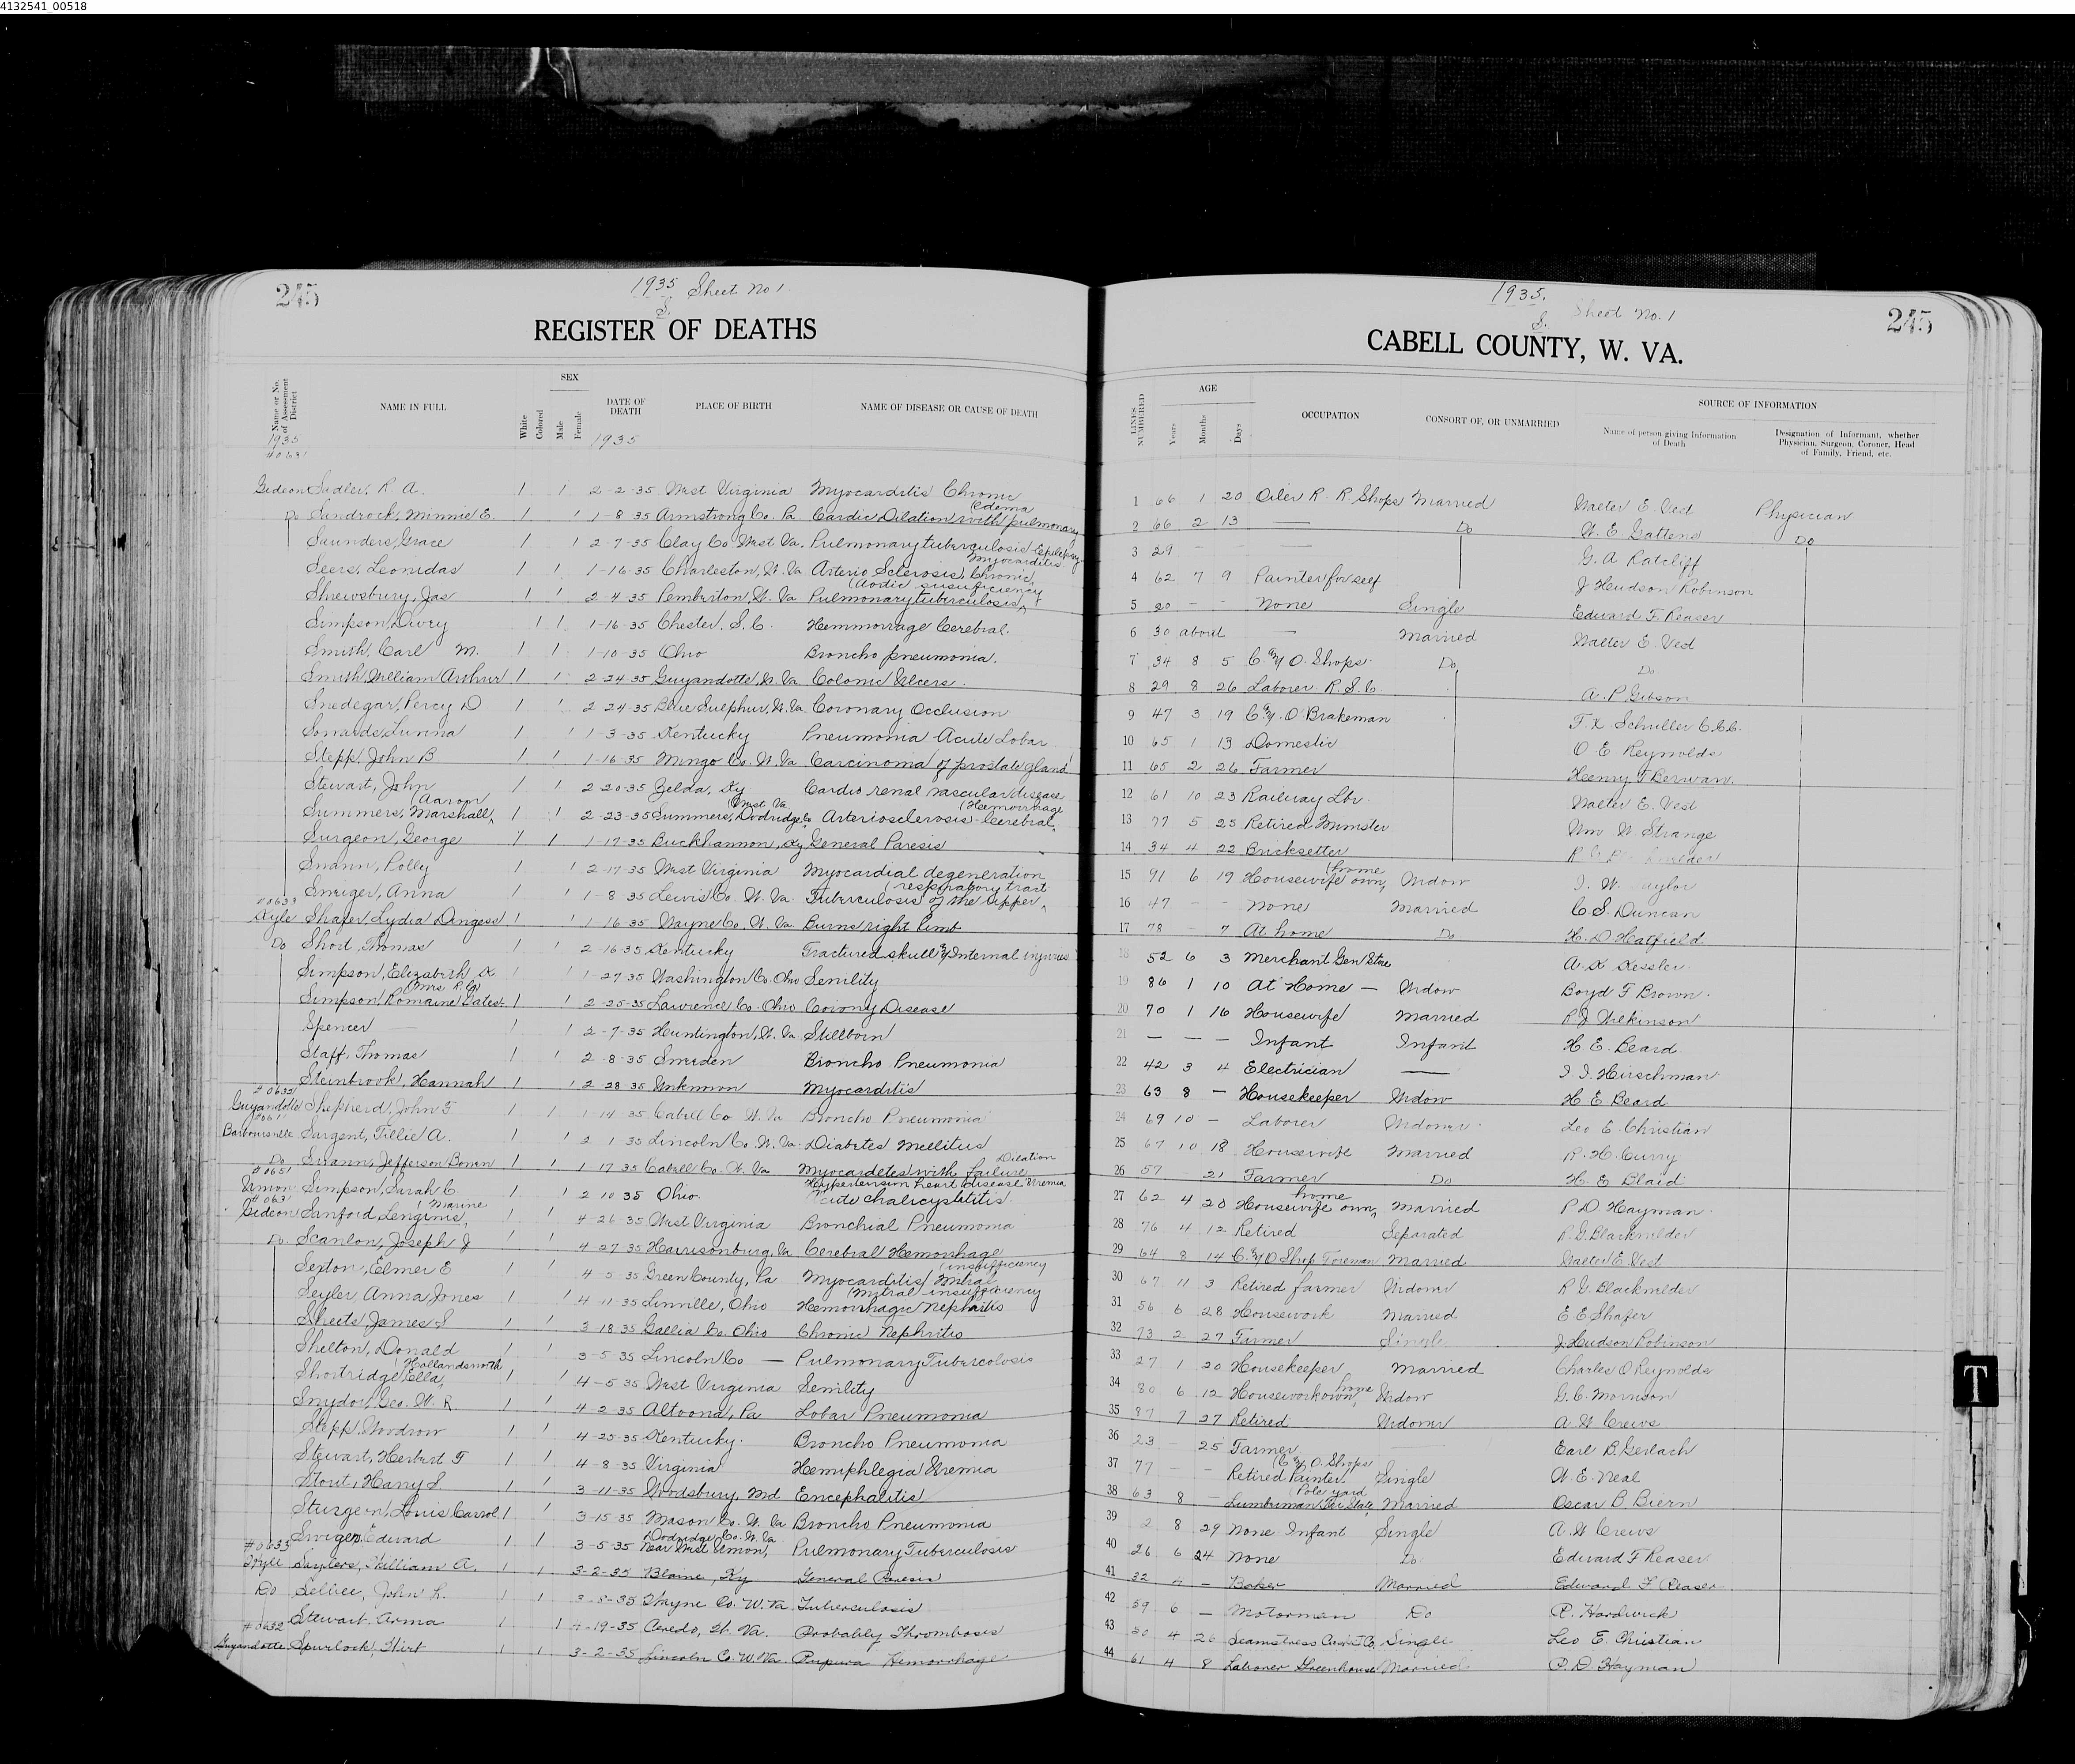 4132541_00518
245
1935 Sheet No 1.
S.
REGISTER OF DEATHS
Name or No. of Assessment District
NAME IN FULL
White
Colored
SEX
Male
Female
DATE OF DEATH
PLACE OF BIRTH
NAME OF DISEASE OR CAUSE OF DEATH
1935
#0631
1935
Gideon Sadler, R. A. 1 1 2-2-35 West Virginia Myocarditis Chronic
Do Sandrock, Minnie E. 1 1 1-8 35 Armstrong Co. Pa Cardic Dilation with pulmonary (Edema
Saunders, Grace 1 1 2-7-35 Clay Co West Va. Pulmonary tuberculosis Epilepsy
Seers, Leonidas 1 1 1-16-35 Charleston, W. Va Arterio Sclerosis, Chronic Myocarditis
Shrewsbury, Jas 1 1 2-4-35 Pembriton, W. Va Pulmonary tuberculosis (Aortic insuficiency
Simpson, Divey 1 1 1-16-35 Chester, S. C. Hemmorrage Cerebral.
Smith, Carl M. 1 1 1-10-35 Ohio Broncho pneumonia.
Smith, William Arthur 1 1 2-24-35 Guyandotte, W. Va Colonic Ulcers.
Snedegar, Percy D 1 1 2 24-35 Blue Sulphur, W. Va. Coronary Occlusion
Sowards, Lurina 1 1 1-3-35 Kentucky Pneumonia - Acute Lobar
Stepp, John B 1 1 1-16-35 Mingo Co. W. Va Carcinoma of prostate gland
Stewart, John 1 1 2 20-35 Zelda, Ky Cardio renal vascular disease
Summers, Marshall (Aaron 1 1 2-23-35 Summers, Dodridge Co (West Va. Arteriosclerosis - Cerebral (Hemorrhage
Surgeon, George 1 1 1 17-35 Buckhannon, Ky General Paresis
Swann, Polly 1 1 2-17-35 West Virginia Myocardial degeneration
Sweiger, Anna 1 1 1-8 35 Lewis Co. W. Va. Tuberculosis of the upper (respiratory tract
#0633
Kyle Shafer, Lydia Dingess 1 1 1-16-35 Wayne Co. W. Va. Burns right limb
Do Short, Thomas 1 1 2-16-35 Kentucky Fractured skull & Internal injuries
Simpson, Elizabeth K 1 1 1-27-35 Washington Co. Ohio Senility
Simpson, Romaine Oates (Mrs R. G.) 1 1 2-25-35 Lawrence Co. Ohio Corony Disease
Spencer — 1 2-7-35 Huntington, W. Va. Stillborn
Staff, Thomas 1 1 2-8-35 Sweden Broncho Pneumonia
Steinbrook, Hannah 1 1 2 28 35 Unknown Myocarditis
#0632
Guyandotte Shepherd, John F 1 1 1-14-35 Cabell Co W. Va Broncho Pneumonia
#0611
Barboursville Sargent, Tillie A. 1 1 2 1 35 Lincoln Co. W. Va. Diabetes Mellitus
Do Swann, Jefferson Bowen 1 1 1 17 35 Cabell Co. W. Va Myocardetes with failure Dilation
#0651
Union Simpson, Sarah C 1 1 2 10 35 Ohio. Hypertension heart disease Uremia Acute chalicystitis.
#0631
Gideon Sanford, Lenginis (Marine 1 1 4-26 35 West Virginia Bronchial Pneumonia
Do. Scanlon, Joseph J 1 1 4 27 35 Harrisonburg, Va Cerebral Hemorrhage
Sexton, Elmer E 1 1 4-5 35 Green County, Pa Myocarditis Mitral (insufficiency
Seyler Anna Jones 1 1 4-11 35 Linville, Ohio Hemorrhagic Nephritis (Mitral insufficiency
Sheets, James S 1 1 3-18-35 Gallia Co. Ohio Chronic Nephritis
Shelton, Donald 1 1 3-5 35 Lincoln Co — Pulmonary Tubercolosis
Shortridge Ella, (Hollandsworth 1 1 4-5 35 West Virginia Senility
Snydor, Geo. W. R. 1 1 4 2 35 Altoona, Pa Lobar Pneumonia
Stepp, Woodrow 1 1 4-25-35 Kentucky. Broncho Pneumonia
Stewart, Herbert F 1 1 4-8-35 Virginia Hemiphlegia Uremia
Stout, Harry S. 1 1 3-11-35 Woodsbury, Md Encephalitis
Sturgeon, Louis Carrol 1 1 3-15 35 Mason Co. W. Va Broncho Pneumonia
Swiger, Edward 1 1 3-5-35 Near West Union, Dodridge Co. W. Va. Pulmonary Tuberculosis
#0633
Kyle Saylers, William A. 1 1 3-2-35 Blaine, Ky General Paresis
Do John R. 1 1 3-8-35 Wayne Co. W. Va. Tuberculosis
Stewart, Arma 1 1 4-19-35 Ceredo, W. Va. Probably Thrombosis
#0632
Guyandotte Spurlock, Hirt 1 1 3-2-35 Lincoln Co. W. Va. Purpura Hemorrhage
1935.
S.
Sheet No. 1
245
CABELL COUNTY, W. VA.
LINES NUMBERED
AGE
Years
Months
Days
OCCUPATION
CONSORT OF, OR UNMARRIED
SOURCE OF INFORMATION
Name of person giving Information of Death
Designation of Informant, whether Physician, Surgeon, Coroner, Head of Family, Friend, etc.
1 66 1 20 Oiler R. R. Shops Married Walter E. Vest Physician
2 66 2 13 — Do W. E. Gattens Do
3 29 - - — G. A Ratcliff
4 62 7 9 Painter for self J Hudson Robinson
5 20 - - None Single Edward F. Reaser
6 30 about — Married Walter E. Vest
7 34 8 5 C. & O. Shops. Do Do
8 29 8 26 Laborer R. S. C. A. P. Gibson
9 47 3 19 C. & O Brakeman T. K. Schuller C.C.C.
10 65 1 13 Domestic O. E Reynolds
11 65 2 26 Farmer Henry F Berwan.
12 61 10 23 Railway Lbr. Walter E. Vest
13 77 5 25 Retired Minister Wm W Strange
14 34 4 22 Bricksetter
15 91 6 19 Housewife own, (home Widow I. W. Taylor
16 47 - - None Married C. S. Duncan
17 78 - 7 At home Do H. D Hatfield
18 52 6 3 Merchant Gen Store A. K Kessler.
19 86 1 10 At Home — Widow Boyd F Brown.
20 70 1 16 Housewife Married R J Wilkinson
21 — — — Infant Infant H. E. Beard.
22 42 3 4 Electrician — I. I. Hirschman
23 63 8 — Housekeeper Widow H E Beard
24 69 10 — Laborer Widower. Leo E. Christian
25 67 10 18 Housewife Married R. H. Curry
26 57 21 Farmer Do H. E Blaid
27 62 4 20 Housewife own, home Married P. D. Hayman.
28 76 4 12 Retired Separated R. G. Blackwelder
29 64 8 14 C. & O Shop Foreman Married Walter E. Vest
30 67 11 3 Retired farmer Widower R G. Blackwelder
31 56 6 28 Housework Married E E Shafer
32 73 2 27 Farmer Single J. Hudson Robinson
33 27 1 20 Housekeeper Married Charles O Reynolds
34 80 6 12 Housework own, home Widow G. C. Morrison
35 87 7 27 Retired Widower A. W Crews.
36 23 - 25 Farmer Earl B. Gerlach
37 77 - - Retired Painter (C. & O. Shops Single W. E. Neal
38 63 8 - Lumberman Tri State (Pole yard Married Oscar B. Biern
39 2 8 29 None Infant Single A. W Crews
40 26 6 24 None Do. Edward F Reaser
41 32 4 - Baker Married Edward F Reaser
42 59 6 — Motorman Do R. Hardwick
43 50 4 26 Seamstress Single Leo E. Christian
44 61 4 8 Laborer Greenhouse Married. P. D. Hayman
T